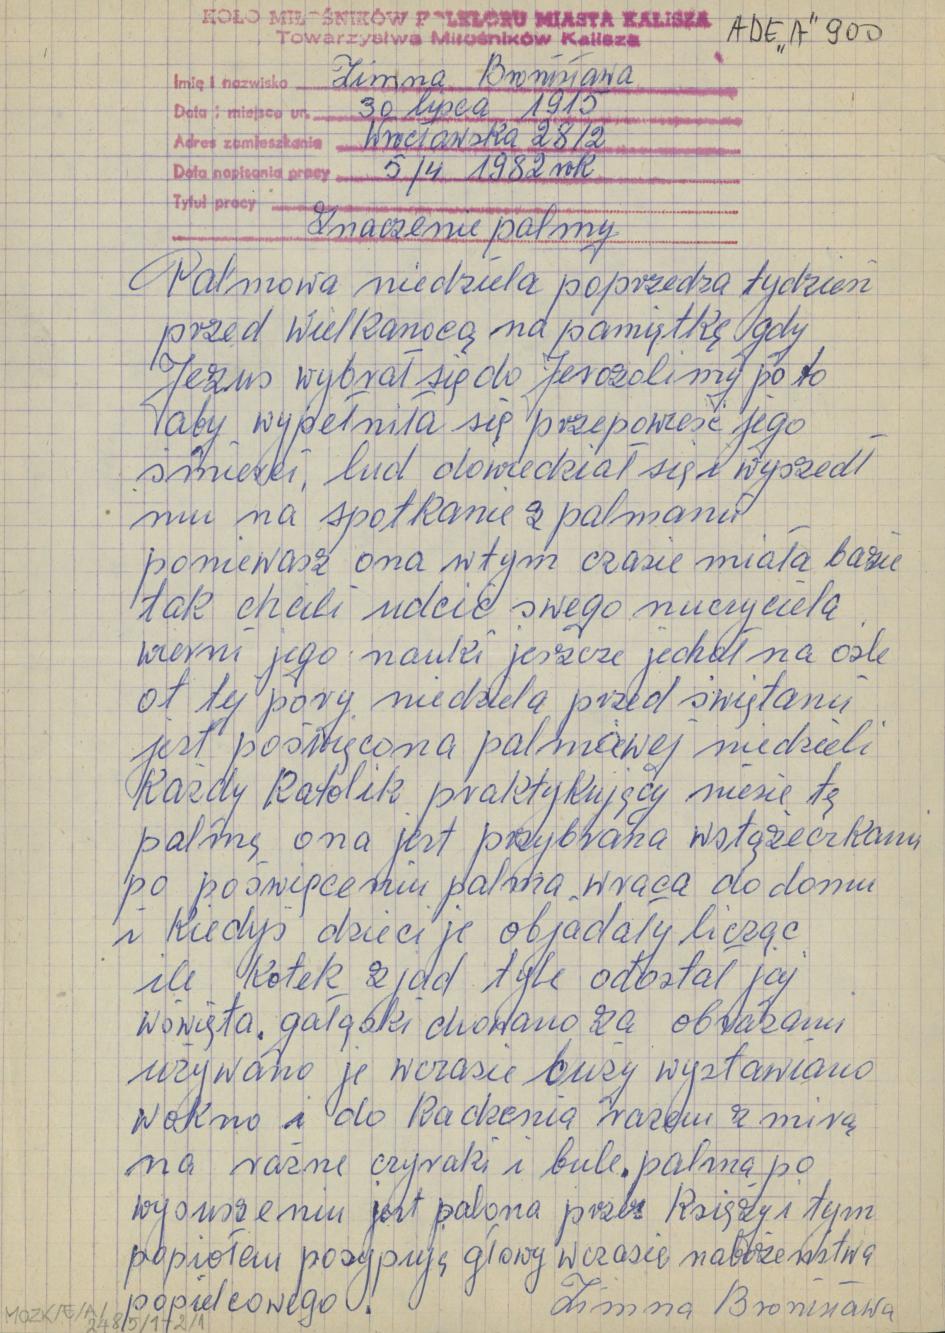 KOŁO MIŁOŚNIKÓW FOLKLORU MIASTA KALISZA
Towarzystwa Miłośników Kalisza
ADE „A" 900
Imię i nazwisko Zimna Bronisława
Data i miejsce ur. 30 lipca 1915
Adres zamieszkania Wrocławska 28/2
Data napisania pracy 5/4 1982 rok
Tytuł pracy
Znaczenie palmy
Palmowa niedziela poprzedza tydzień
przed Wielkanocą na pamiątkę gdy
Jezus wybrał się do Jerozolimy po to
aby wypełniła się przepowieść jego
śmierci, lud dowiedział się i wyszedł
mu na spotkanie z palmami
poniewasz ona wtym czasie miała bazie
tak chcieli udcić swego nuczyciela
wierni jego nauki jeszcze jechał na ośle
ot tej pory niedziela przed świętami
jest poświęcona palmowej niedzieli
Każdy Katolik praktykujący niesie tą
palmę ona jest przybrana wstążeczkami
po poświęceniu palma wraca do domu
i kiedyś dzieci je objadały licząc
ile kotek zjad tyle odostał jaj
wświęta. gałąski chowano za obrazami
używano je wczasie buży wystawiano
wokno i do kadzenia razem z mirą
na rażne czyraki i bule. palma po
wysuszeniu jest palona przez Księży i tym
popiołem posypują głowy wczasie nabożeństwa
popielcowego.
Zimna Bronisława
MOZK/E/A/
248/5/1÷2/1